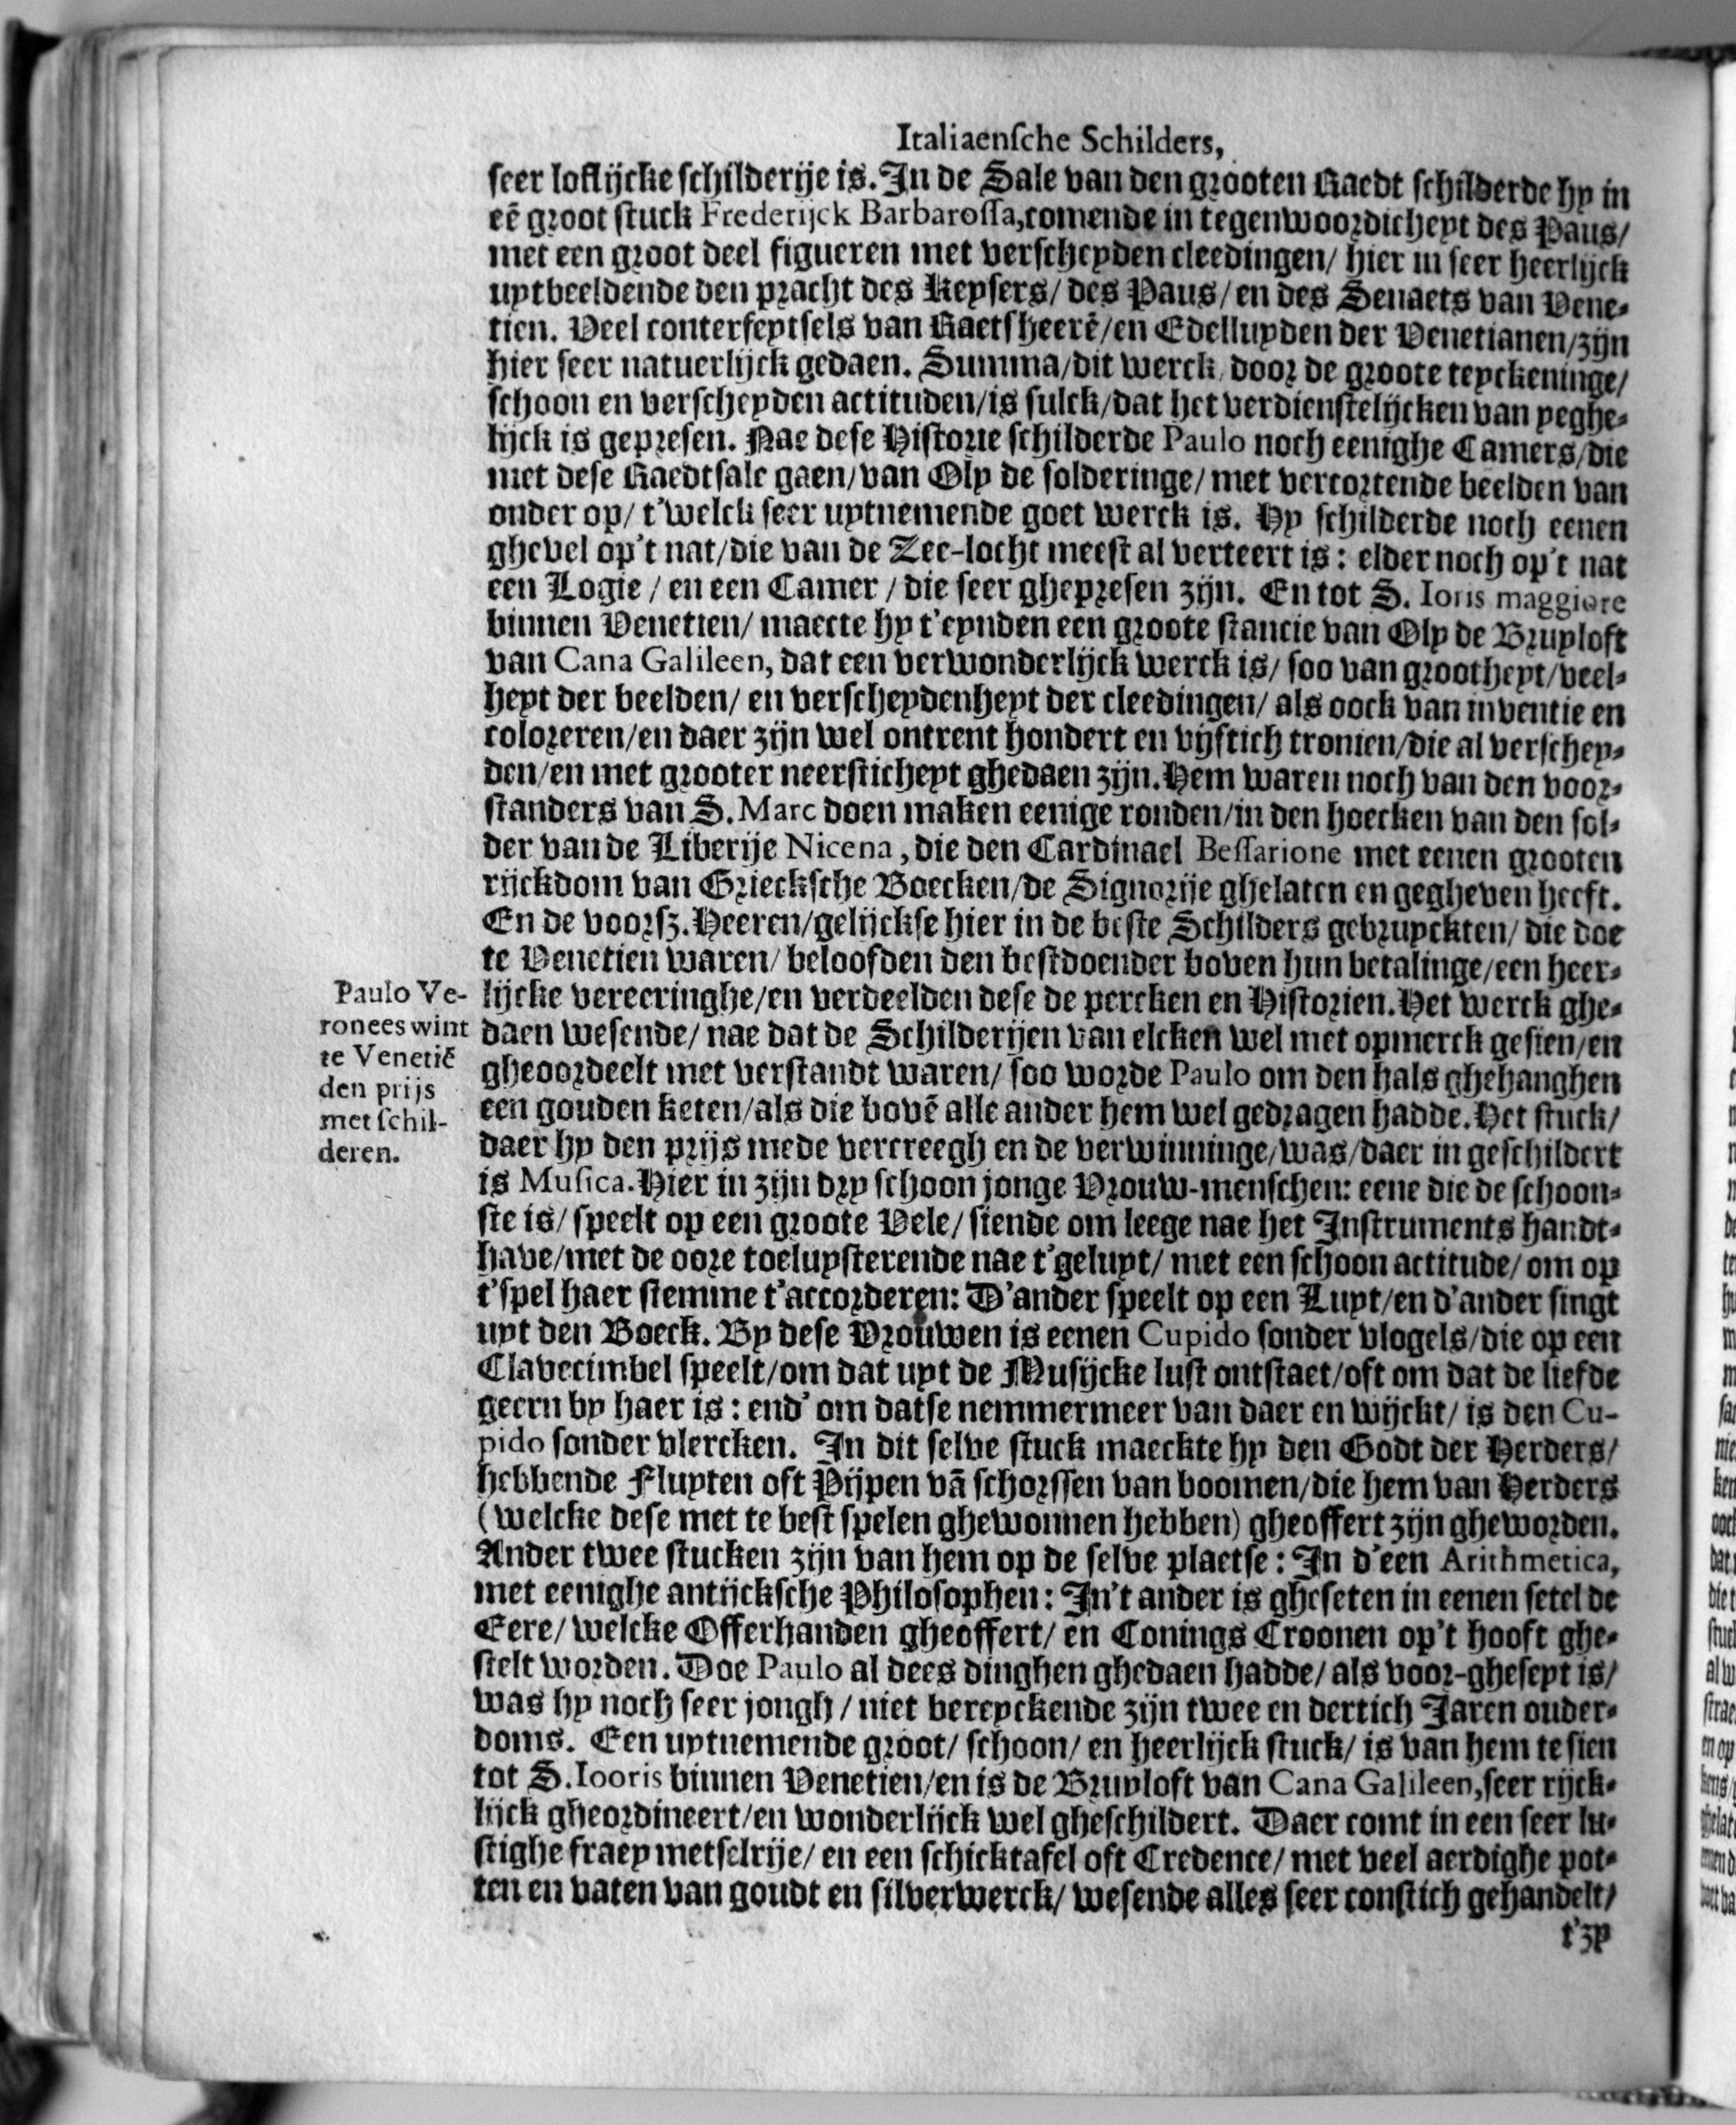 Italiaensche Schilders,
seer loflijcke schilderije is. In de Sale van den grooten Raedt schilderde hy in
eē groot stuck Frederijck Barbarossa, comende in tegenwoordicheyt des Paus/
met een groot deel figueren met verscheyden cleedingen/ hier in seer heerlijck
uytbeeldende den pracht des Keysers/ des Paus/ en des Senaets van Vene-
tien. Veel conterfeytsels van Raetsheerē/ en Edelluyden der Venetianen/ zijn
hier seer natuerlijck gedaen. Summa/ dit werck door de groote teyckeninge/
schoon en verscheyden actituden/ is sulck/ dat het verdienstelijcken van yeghe-
lijck is gepresen. Nae dese Historie schilderde Paulo noch eenighe Camers/ die
met dese Raedtsale gaen/ van Oly de solderinge/ met vercortende beelden van
onder op/ t'welck seer uytnemende goet werck is. Hy schilderde noch eenen
ghevel op't nat/ die van de Zee-locht meest al verteert is: elder noch op't nat
een Logie/ en een Camer/ die seer ghepresen zijn. En tot S. Ioris maggiore
binnen Venetien/ maecte hy t'eynden een groote stantie van Oly de Bruyloft
van Cana Galileen, dat een verwonderlijck werck is/ soo van grootheyt/ veel-
heyt der beelden/ en verscheydenheyt der cleedingen/ als oock van inventie en
coloreren/ en daer zijn wel ontrent hondert en vijftich tronien/ die al verschey-
den/ en met grooter neersticheyt ghedaen zijn. Hem waren noch van den voor-
standers van S. Marc doen maken eenige ronden/ in den hoecken van den sol-
der van de Liberije Nicena, die den Cardinael Bessarione met eenen grooten
rijckdom van Griecksche Boecken/ de Signorije ghelaten en gegheven heeft.
En de voorsz. Heeren/ gelijckse hier in de beste Schilders gebruyckten/ die doe
te Venetien waren/ beloofden den bestdoender boven hun betalinge/ een heer-
lijcke vereeringhe/ en verdeelden dese de percken en Historien. Het werck ghe-
daen wesende/ nae dat de Schilderijen van elcken wel met opmerck gesien/ en
gheoordeelt met verstandt waren/ soo worde Paulo om den hals ghehanghen
een gouden keten/ als die bovē alle ander hem wel gedragen hadde. Het stuck/
daer hy den prijs mede vercreegh en de verwinninge/ was/ daer in geschildert
is Musica. Hier in zijn dry schoon jonge Vrouw-menschen: eene die de schoon-
ste is/ speelt op een groote Vele/ siende om leege nae het Instruments handt-
have/ met de oore toeluysterende nae t'geluyt/ met een schoon actitude/ om op
t'spel haer stemme t'accorderen: D'ander speelt op een Luyt/ en d'ander singt
uyt den Boeck. By dese Vrouwen is eenen Cupido sonder vlogels/ die op een
Clavecimbel speelt/ om dat uyt de Musijcke lust ontstaet/ oft om dat de liefde
geern by haer is: end' om datse nemmermeer van daer en wijckt/ is den Cu-
pido sonder vlercken. In dit selve stuck maeckte hy den Godt der Herders/
hebbende Fluyten oft Pijpen vā schorssen van boomen/ die hem van Herders
(welcke dese met te best spelen ghewonnen hebben) gheoffert zijn gheworden.
Ander twee stucken zijn van hem op de selve plaetse: In d'een Arithmetica,
met eenighe antijcksche Philosophen: In't ander is gheseten in eenen setel de
Eere/ welcke Offerhanden gheoffert/ en Conings Croonen op't hooft ghe-
stelt worden. Doe Paulo al dees dinghen ghedaen hadde/ als voor-gheseyt is/
was hy noch seer jongh/ niet bereyckende zijn twee en dertich Jaren ouder-
doms. Een uytnemende groot/ schoon/ en heerlijck stuck/ is van hem te sien
tot S. Iooris binnen Venetien/ en is de Bruyloft van Cana Galileen, seer rijck-
lijck gheordineert/ en wonderlijck wel gheschildert. Daer comt in een seer lu-
stighe fraey metselrije/ en een schicktafel oft Credence/ met veel aerdighe pot-
ten en vaten van goudt en silverwerck/ wesende alles seer constich gehandelt/
t'zy
Paulo Ve-
ronees wint
te Venetiē
den prijs
met schil-
deren.